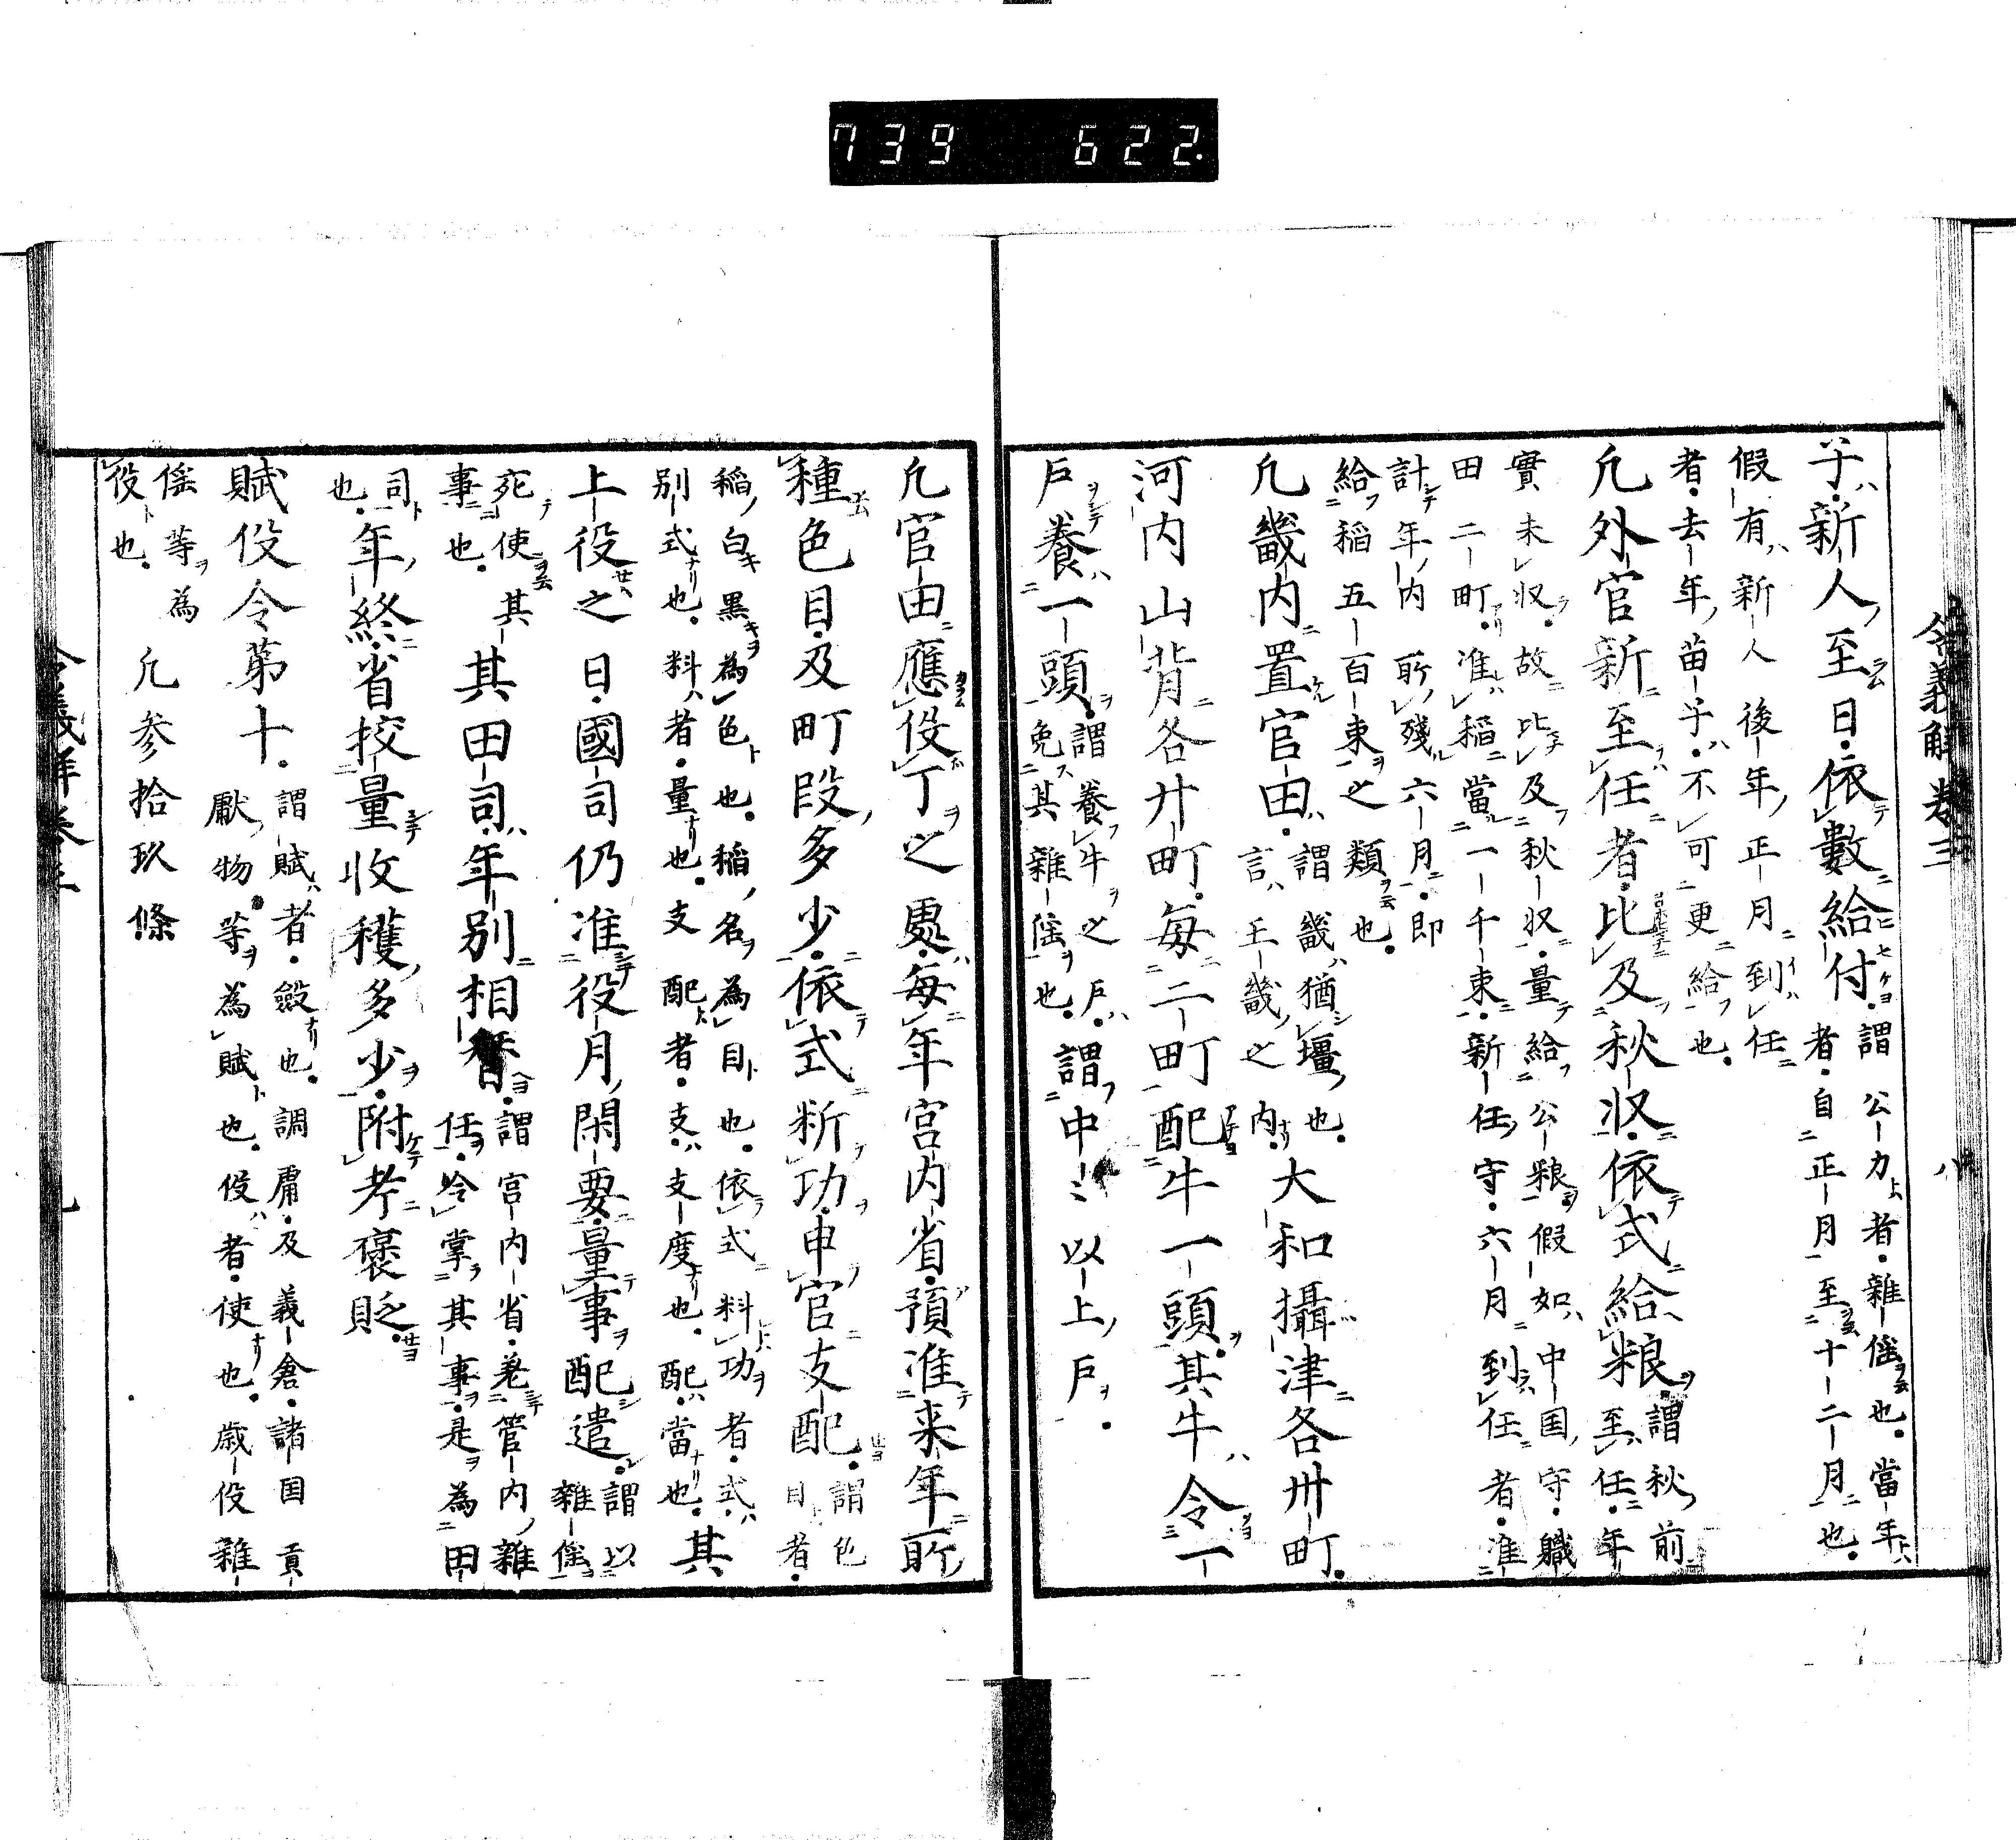 739 622
令義解卷三 八
子新人至日依數給付謂公力者雜徭也當年
者自正月至十二月也
假有新人後年正月到任
者去年苗子不可更給也
凡外官新至任者比及秋収依式給粮謂秋前
至任年
實未収故比及秋収量給公粮假如中国守職
田二町准稲當一千束新任守六月到任者准
計年内所殘六月即
給稲五百束之類也
凡畿内置官田謂畿猶壃也
言王畿之内大和攝津各卅町
河内山背各廿町毎二町配牛一頭其牛令一
戶養一頭謂養牛之戶謂中〻以上戶
免其雜徭也
凡官田應役丁之處毎年宮内省預准来年所
種色目及町段多少依式断功申官支配謂色
目者
稲白黒為色也稲名為目也依式料功者式
別式也料者量也支配者支支度也配當也其
上役之日國司仍准役月閑要量事配遣謂以
雜徭
死使其
事也其田司年別相替謂宮内省差管内雜
任令掌其事是為田
司
也年終省挍量收穫多少附考褒貶
賦役令第十謂賦者斂也調庸及義倉諸国貢
獻物等為賦也役者使也歲役雜
徭等為
役也凡参拾玖條